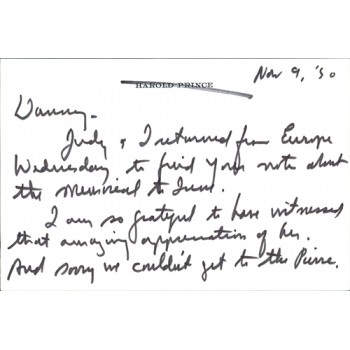 Nov 9, '90
HAROLD PRINCE
Danny -
Judy & I returned from Europe
Wednesday to find your note about
the memorial to
I am so grateful to have witnessed
that amazing appreciation of her.
And sorry we couldn't get to the Pierre.